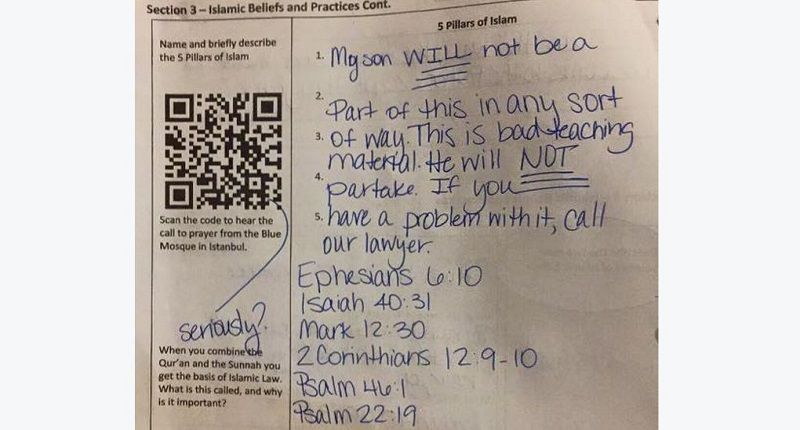 Section 3 – Islamic Beliefs and Practices Cont.
Name and briefly describe
the 5 Pillars of Islam
Scan the code to hear the
call to prayer from the Blue
Mosque in Istanbul.
seriously?
When you combine the
Qur'an and the Sunnah you
get the basis of Islamic Law.
What is this called, and why
is it important?
5 Pillars of Islam
1. My son WILL not be a
2. Part of this in any sort
3. of way. This is bad teaching
material. He will NOT
4. partake. If you
5. have a problem with it, call
our lawyer.
Ephesians 6:10
Isaiah 40:31
Mark 12:30
2 Corinthians 12:9-10
Psalm 46:1
Psalm 22:19